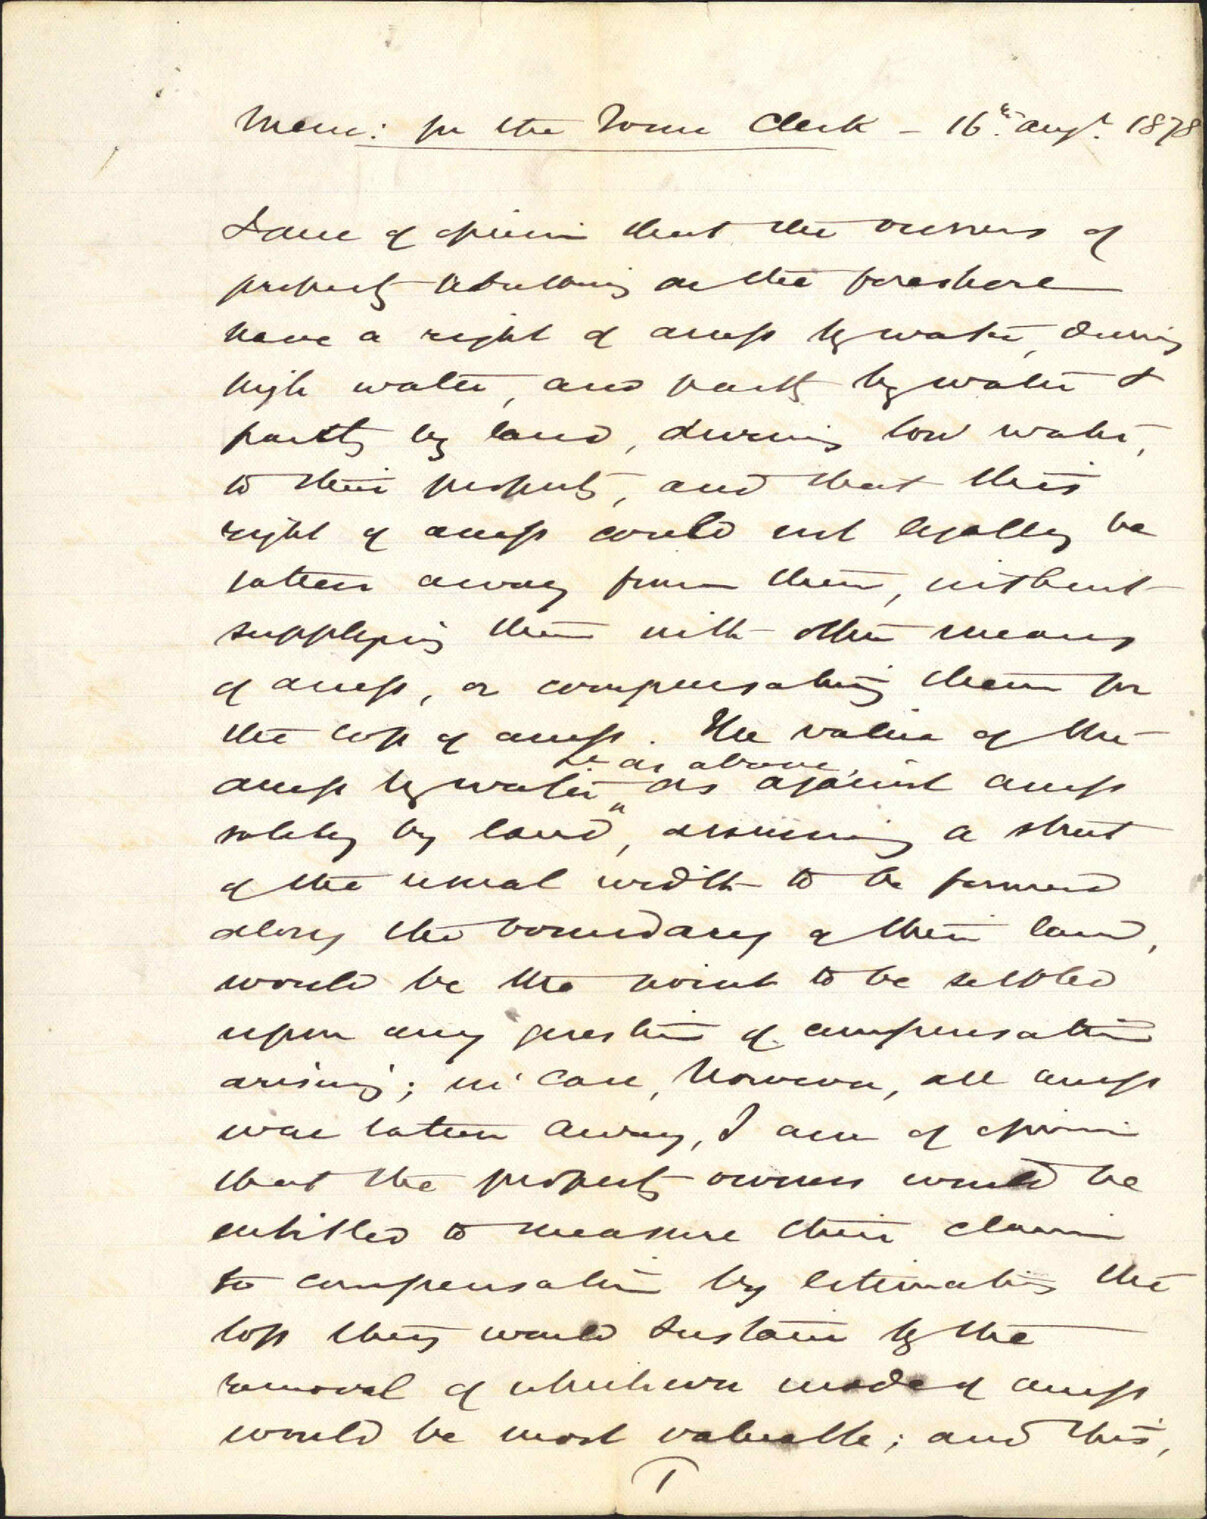 Mem: for the Town Clerk – 16th Augt. 1878
I am of opinion that the owners of
property abutting on the foreshore
have a right of access by water, during
high water, and partly by water &
partly by land, during low water,
to their property, and that this
right of access could not legally be
taken away from them, without
supplying them with other means
of access, or compensating them for
the loss of access. The value of the
&c as above,
access by water " as against access
solely by land, assuming a street
of the usual width to be formed
along the boundary of their land,
would be the point to be settled
upon any question of compensation
arising; in case, however, all access
was taken away, I am of opinion
that the property owners would be
entitled to measure their claim
to compensation by estimating the
loss they would sustain by the
removal of whichever mode of access
would be most valuable; and this,
1